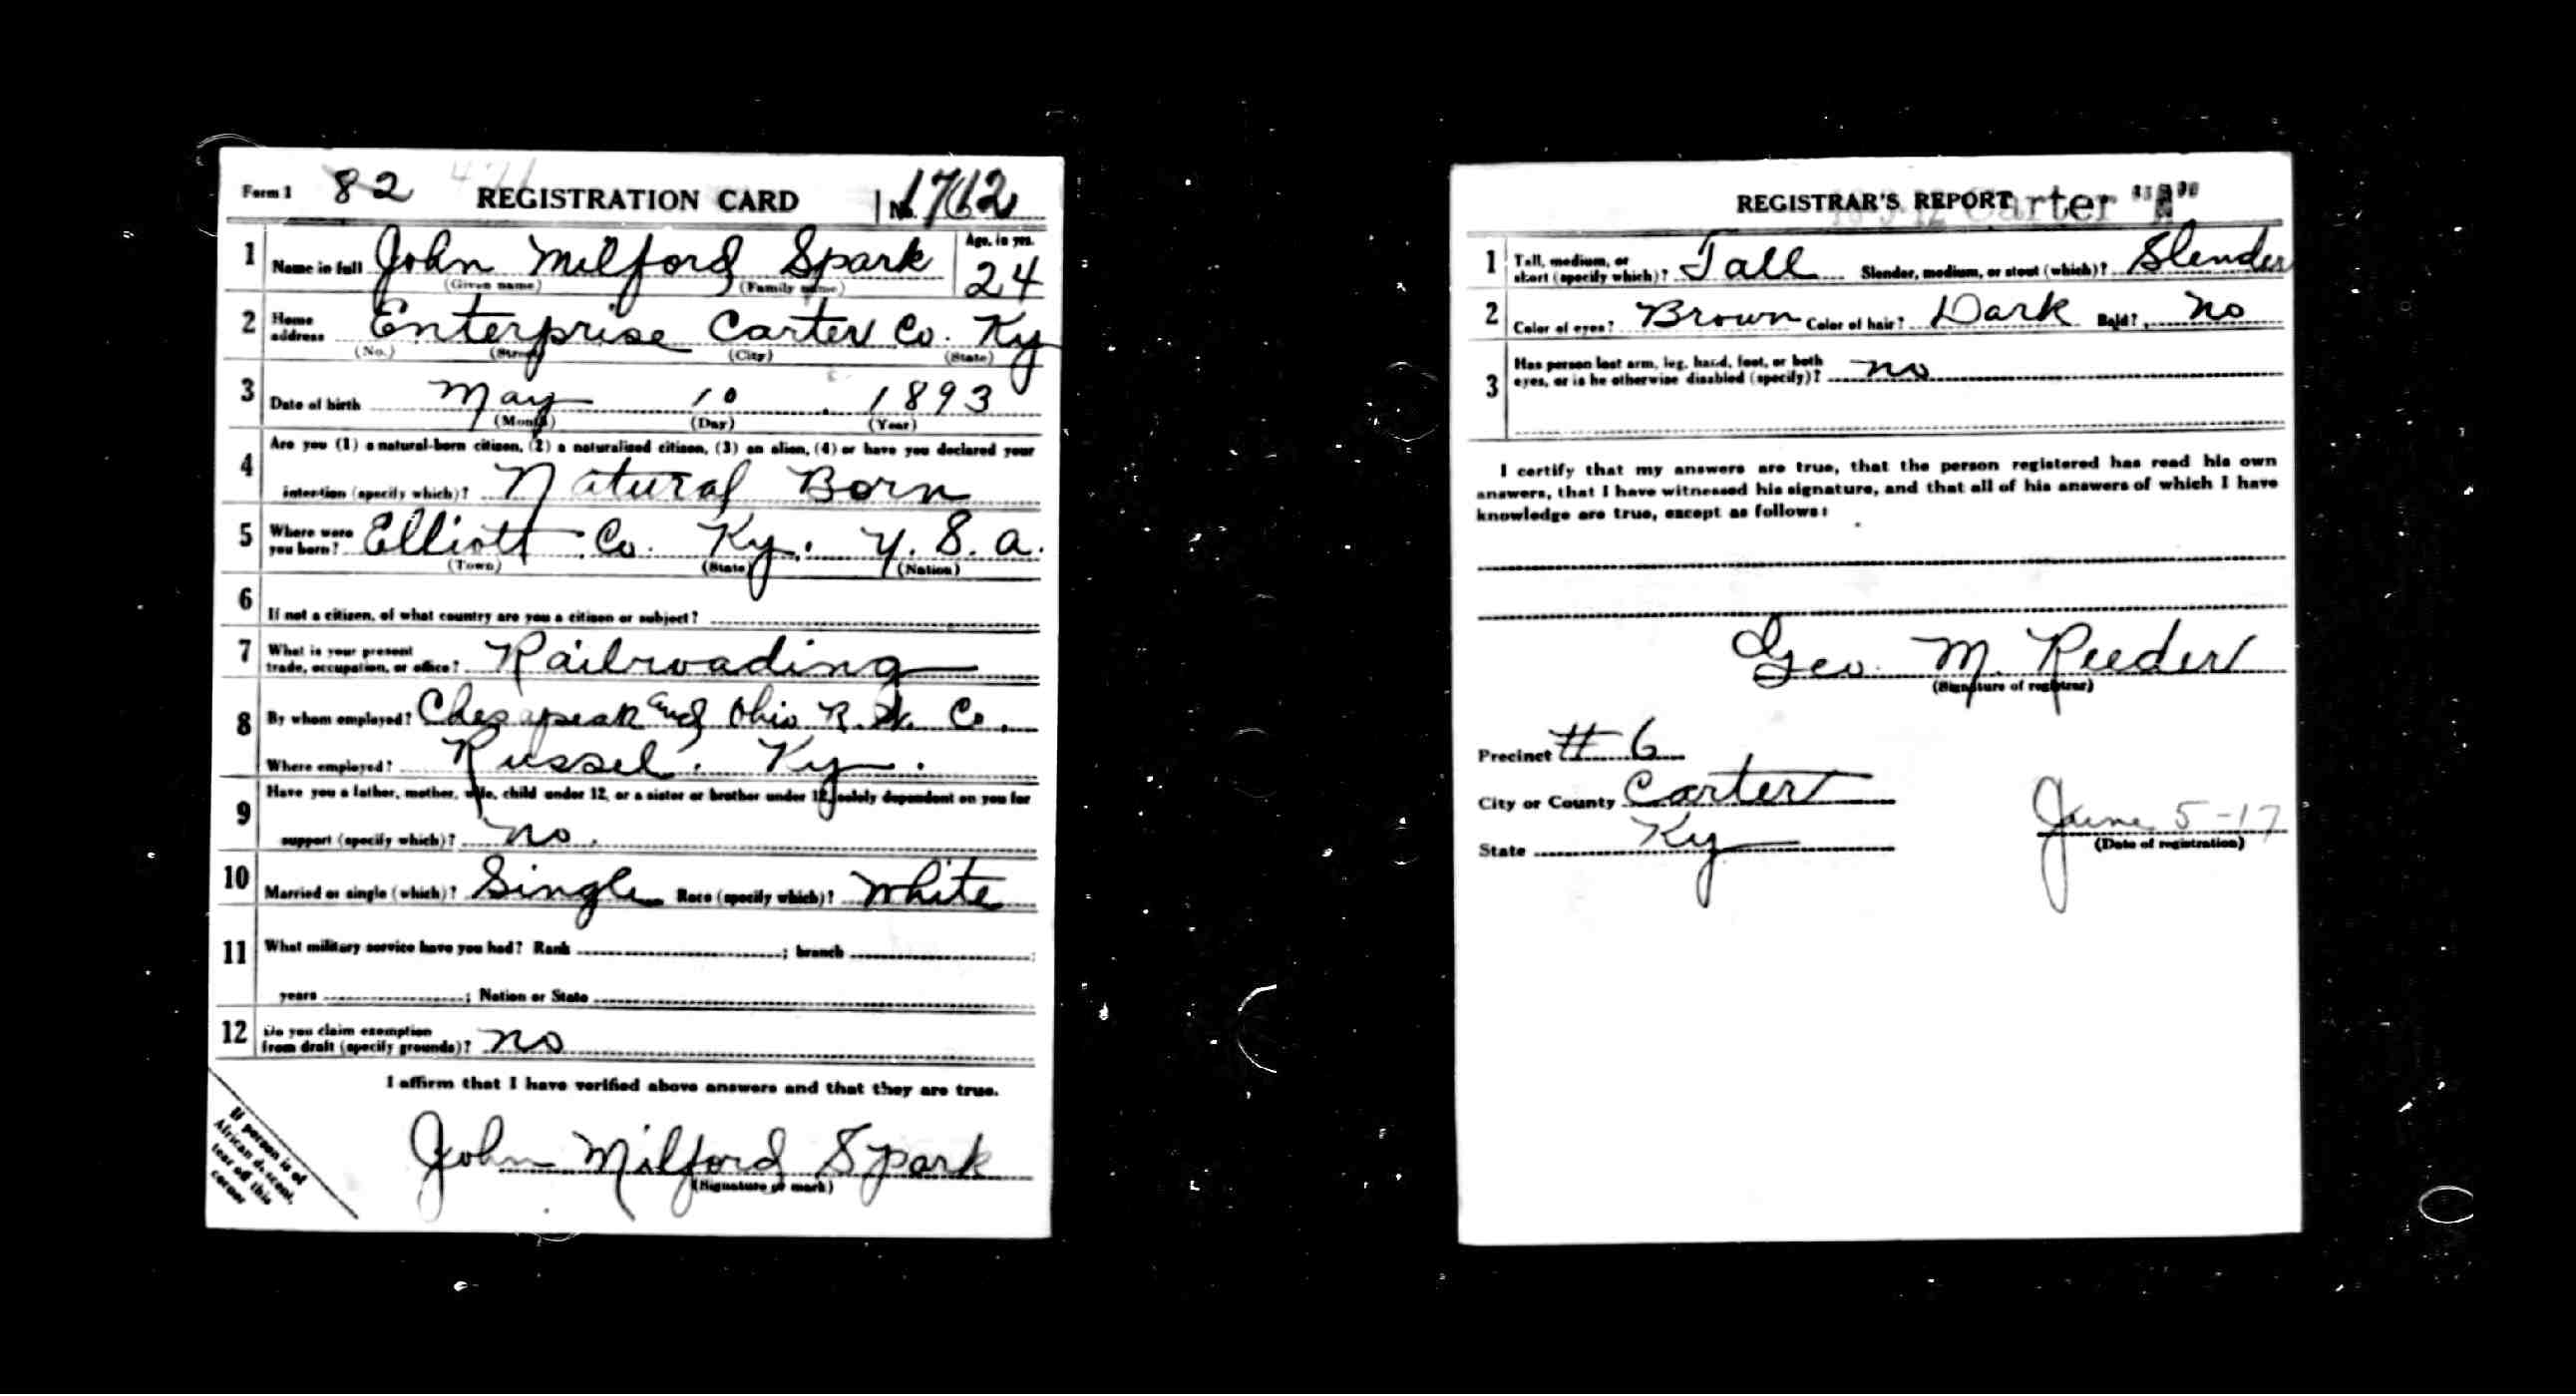 Form 1 82 REGISTRATION CARD No. 1762
1 Name in full John Milford Spark Age, in yrs. 24
(Given name) (Family name)
2 Home address Enterprise Carter Co. Ky
(No.) (Street) (City) (State)
3 Date of birth May 10 1893
(Month) (Day) (Year)
4 Are you (1) a natural-born citizen, (2) a naturalized citizen, (3) an alien, (4) or have you declared your
intention (specify which)? Natural Born
5 Where were you born? Elliott Co. Ky. U. S. a.
(Town) (State) (Nation)
6 If not a citizen, of what country are you a citizen or subject?
7 What is your present trade, occupation, or office? Railroading
8 By whom employed? Chesapeak and Ohio R. W. Co.
Where employed? Russel. Ky.
9 Have you a father, mother, wife, child under 12, or a sister or brother under 12, solely dependent on you for
support (specify which)? no.
10 Married or single (which)? Single Race (specify which)? White
11 What military service have you had? Rank ; branch ;
years ; Nation or State
12 Do you claim exemption from draft (specify grounds)? no
I affirm that I have verified above answers and that they are true.
John Milford Spark
(Signature or mark)
If person is of
African descent,
tear off this
corner
REGISTRAR'S REPORT Carter
1 Tall, medium, or short (specify which)? Tall Slender, medium, or stout (which)? Slender
2 Color of eyes? Brown Color of hair? Dark Bald? No
3 Has person lost arm, leg, hand, foot, or both
eyes, or is he otherwise disabled (specify)? no
I certify that my answers are true, that the person registered has read his own
answers, that I have witnessed his signature, and that all of his answers of which I have
knowledge are true, except as follows:
Geo. M. Reeder
(Signature of registrar)
Precinct # 6
City or County Carter
State Ky
June 5-17
(Date of registration)